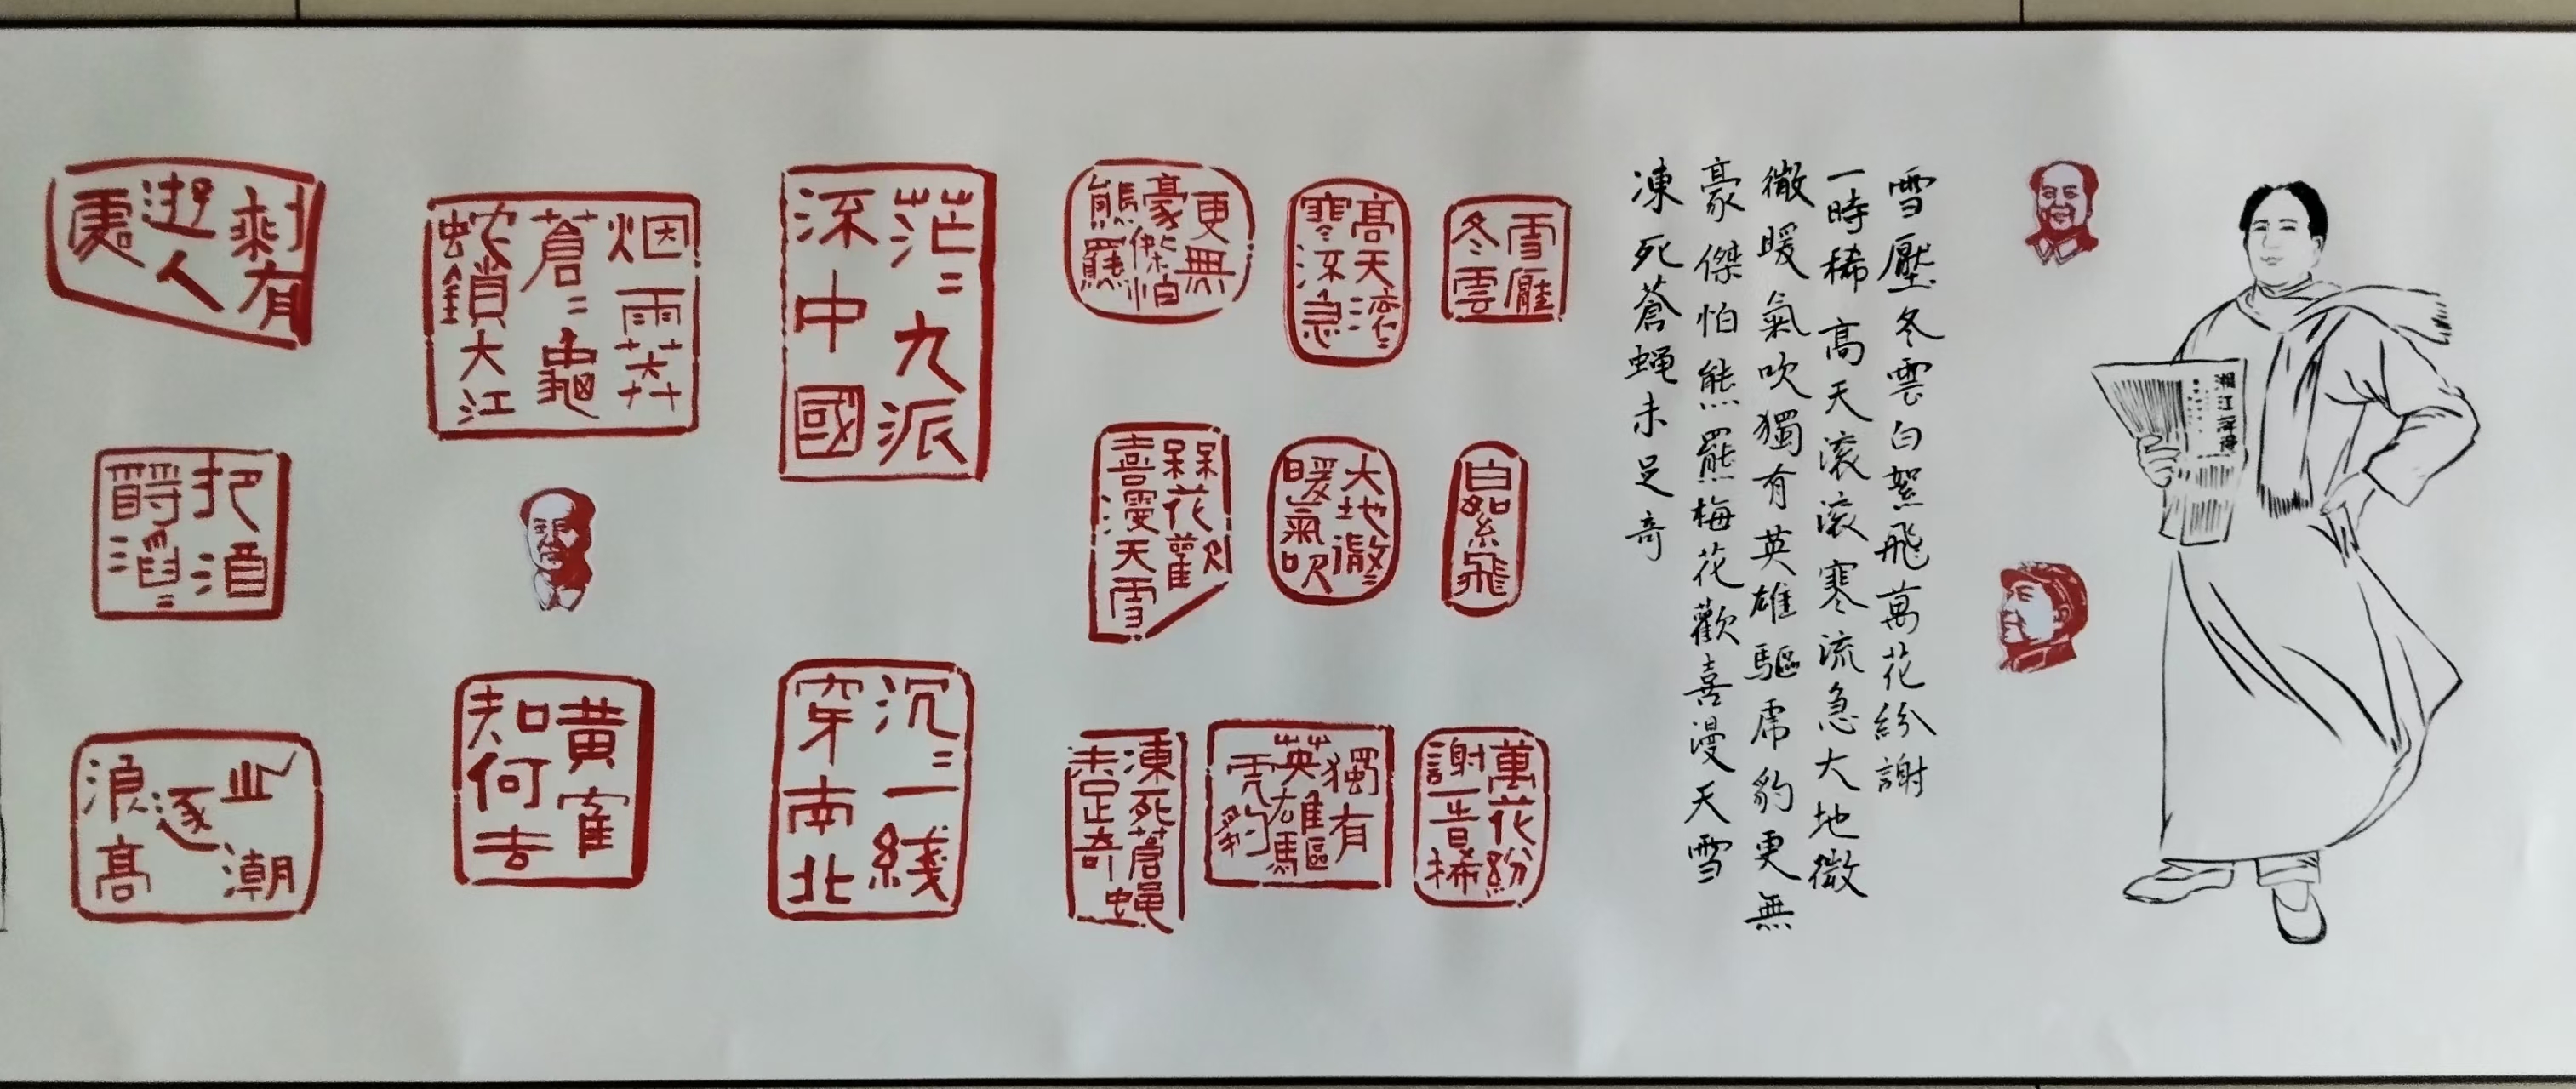 湘江評論
雪壓冬雲白絮飛萬花紛謝
一時稀高天滚滚寒流急大地微
微暖氣吹獨有英雄驅虎豹更無
豪傑怕熊羆梅花歡喜漫天雪
凍死蒼蝇未足奇
雪壓
冬雲
白絮飛
萬花紛
謝一時稀
高天滚〻
寒流急
大地微〻
暖氣吹
獨有
英雄驅
虎豹
更無
豪傑怕
熊羆
槑花歡
喜漫天雪
凍死蒼蝇
未足奇
茫〻九派
流中國
沉〻一綫
穿南北
烟雨莽〻
蒼〻龜
蛇鎖大江
黄崔
知何去
剩有
遊人
處
把酒
酹滔〻
心潮
逐
浪高